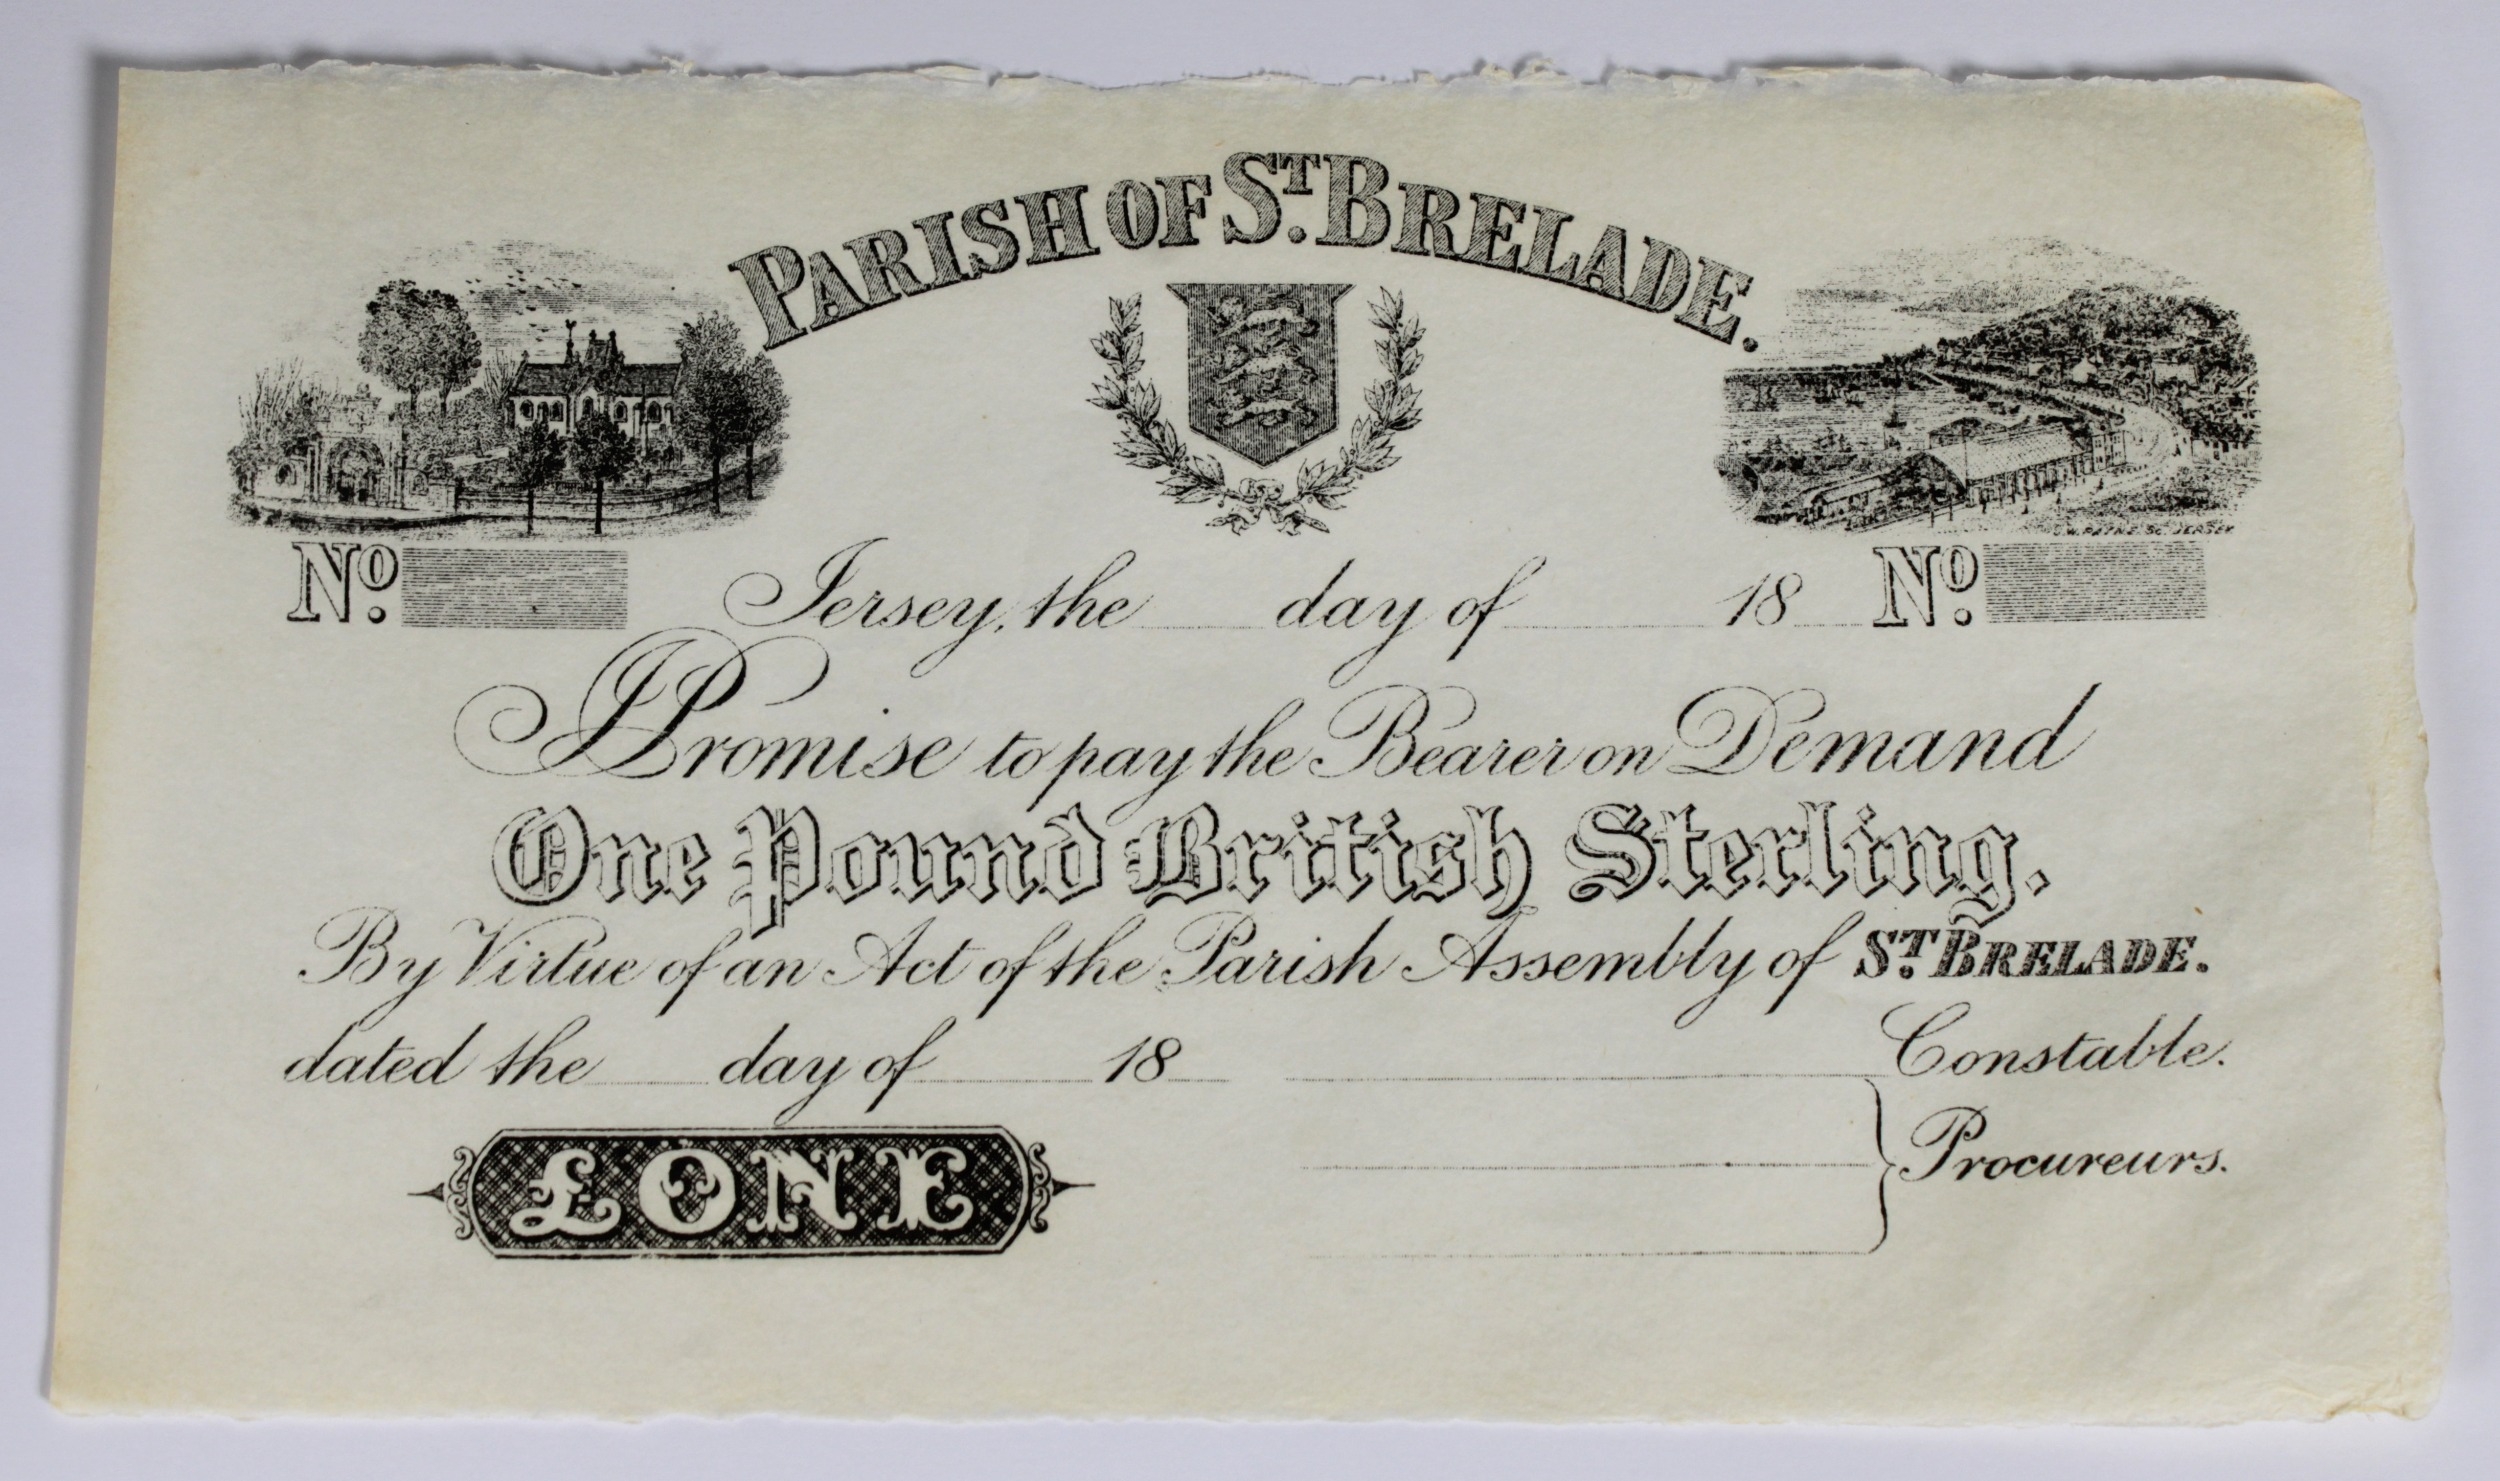 PARISH OF ST. BRELADE.
S.W. PAYNE Sc. JERSEY
No. Jersey, the day of 18 No.
I Promise to pay the Bearer on Demand
One Pound British Sterling.
By Virtue of an Act of the Parish Assembly of ST. BRELADE.
dated the day of 18 Constable.
Procureurs.
£ONE